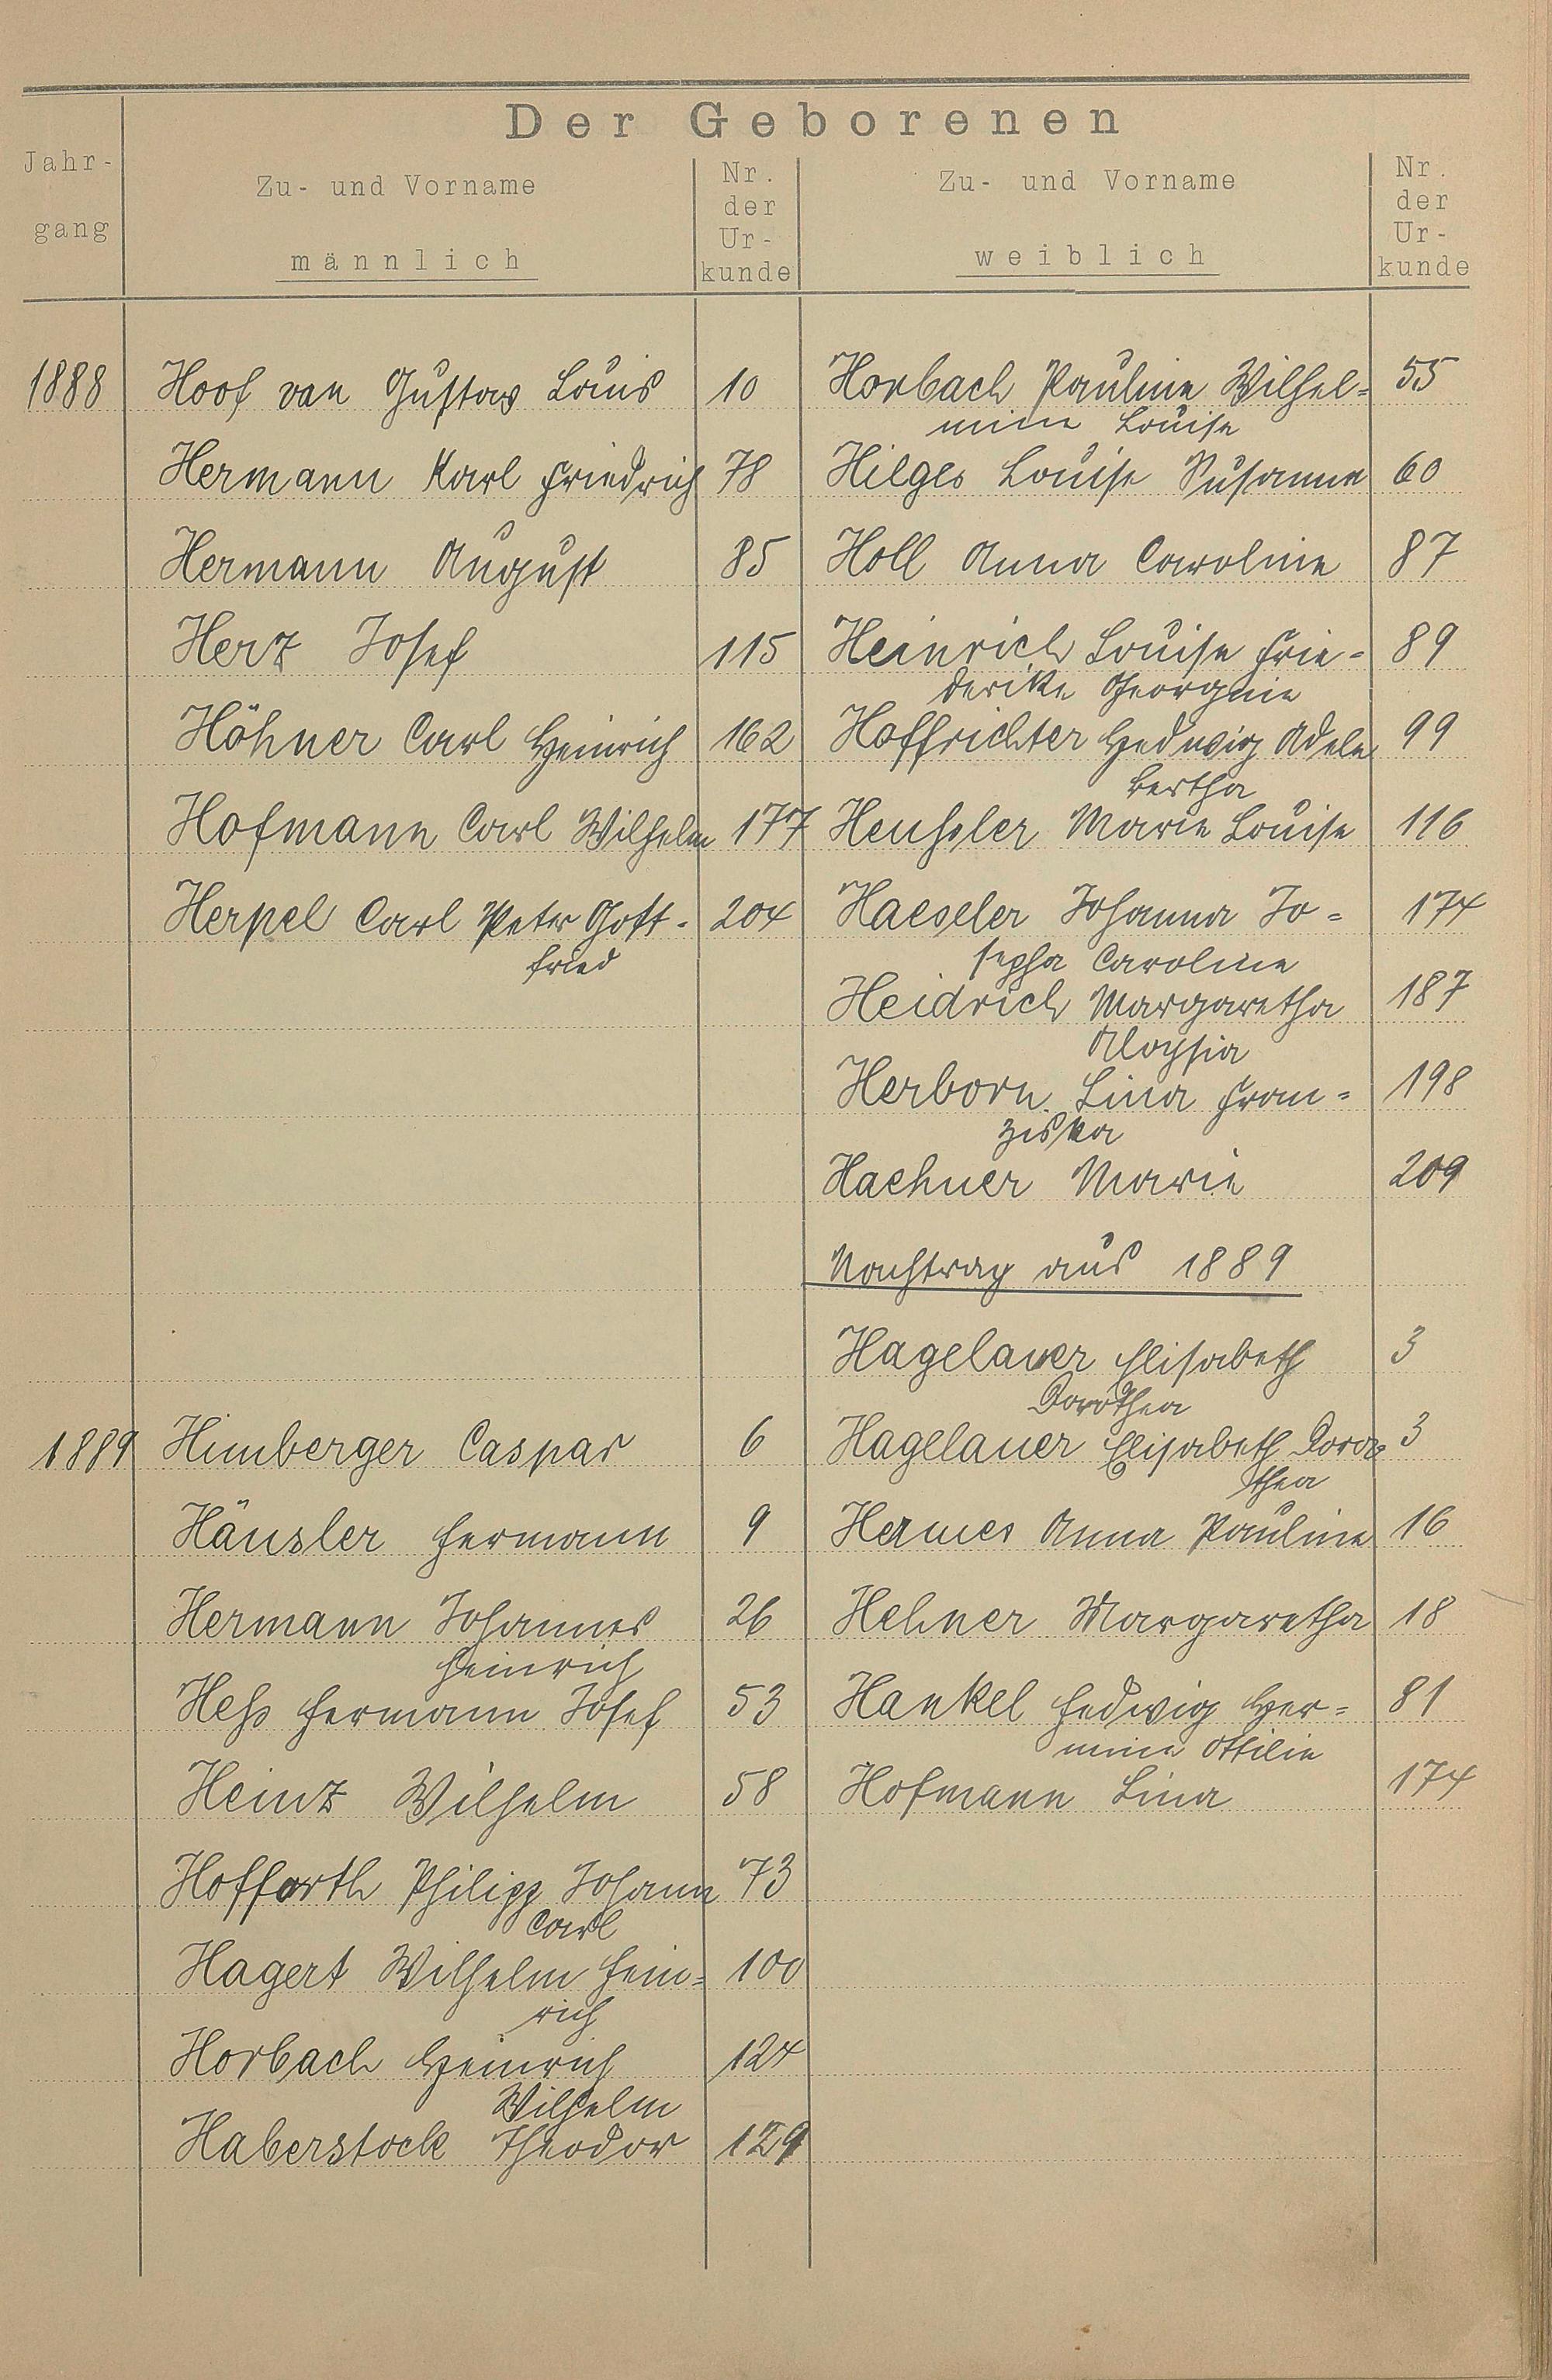 Der Geborenen
Jahr-
gang
Zu- und Vorname
männlich
Nr.
der
Ur-
kunde
Zu- und Vorname
weiblich
Nr.
der
Ur-
kunde
1888 Hoof van Gustav Louis 10 Horbach Pauline Wilhel= 55
mine Louise
Hermann Karl Friedrich 78 Hilges Louise Susanne 60
Hermann August 85 Holl Anna Caroline 87
Herz Josef 115 Heinrich Louise Frie= 89
derike Georgine
Höhner Carl Heinrich 162 Hoffrichter Hedwig Adele 99
Bertha
Hofmann Carl Wilhelm 177 Heußler Marie Louise 116
Herpel Carl Peter Gott- 204 Haeseler Johanna Jo= 174
fried sepha Caroline
Heidrich Margaretha 187
Aloysia
Herborn Lina Fran= 198
ziska
Haehner Marie 209
Nachtrag aus 1889
Hagelauer Elisabeth 3
Dorothea
1889 Himberger Caspar 6 Hagelauer Elisabeth Doro= 3
thea
Häusler Hermann 9 Hermes Anna Pauline 16
Hermann Johannes 26 Hehner Margaretha 18
Heinrich
Heß Hermann Josef 53 Hankel Hedwig Her= 81
mine Ottilie
Heinz Wilhelm 58 Hofmann Lina 174
Hofforth Philipp Johann 73
Carl
Hagert Wilhelm Hein= 100
rich
Horbach Heinrich 124
Wilhelm
Haberstock Theodor 129